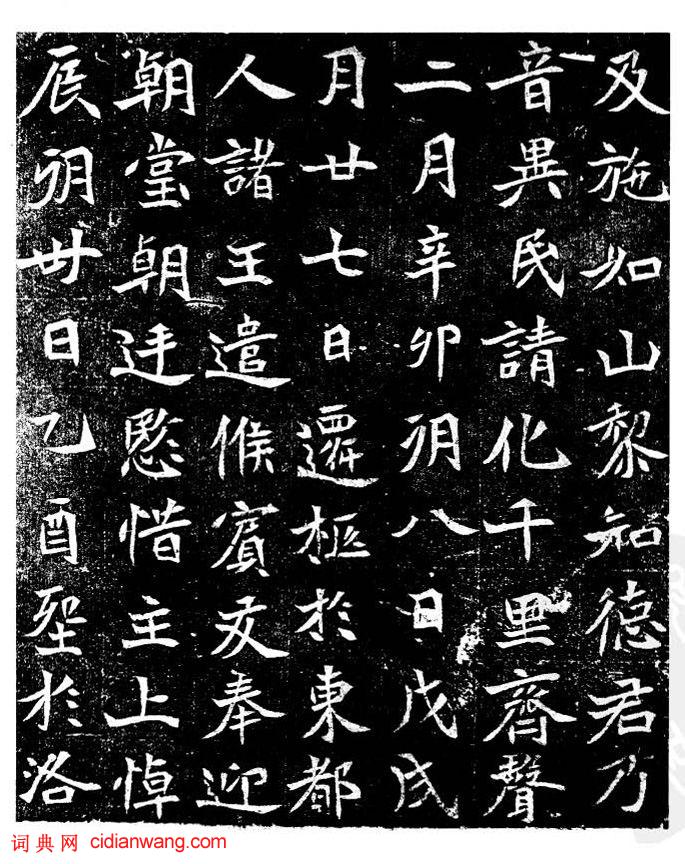 及施如山黎知德君乃
音異民請化千里齊聲
二月辛卯朔八日戊戌
月廿七日遷柩於東都
人諸王遣候賓友奉迎
朝堂朝廷愍惜主上悼
辰朔卅日乙酉葬於洛
词典网 cidianwang.com